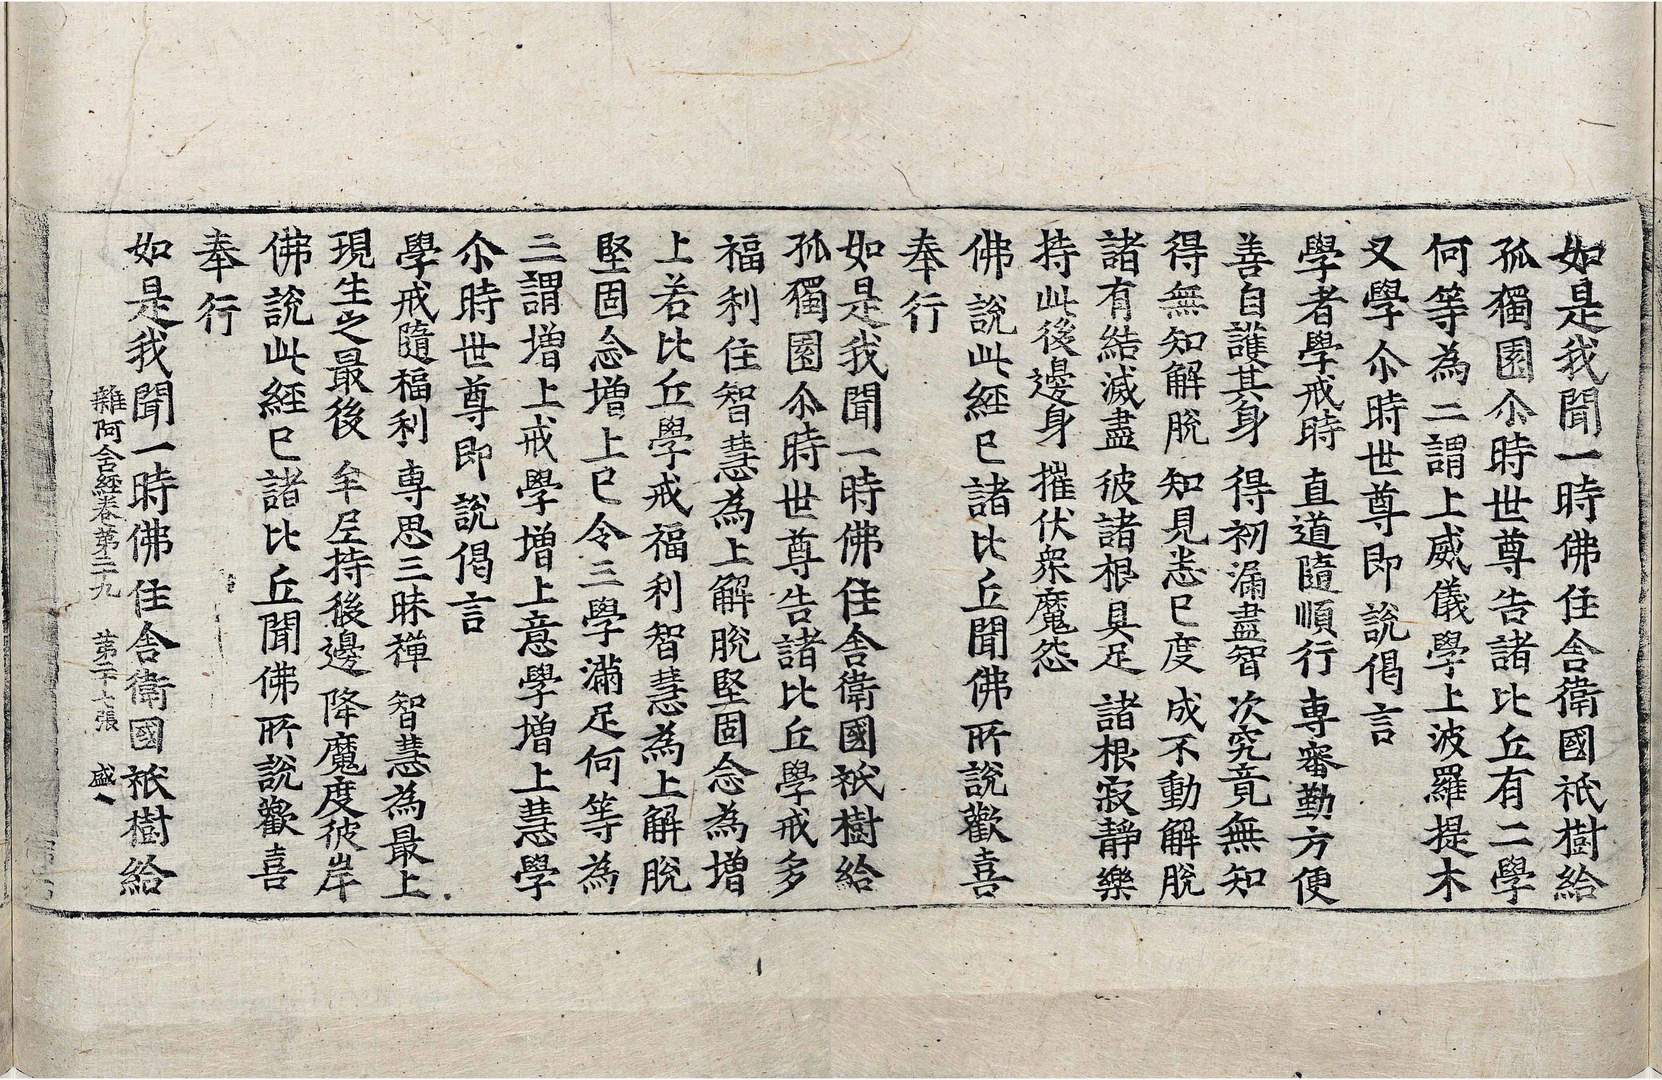 如是我聞一時佛住舍衛國祇樹給
孤獨園尒時世尊告諸比丘有二學
何等為二謂上威儀學上波羅提木
又學尒時世尊即說偈言
學者學戒時 直道隨順行 専審勤方便
善自護其身 得初漏盡智 次究竟無知
得無知解脫 知見悉已度 成不動解脫
諸有結滅盡 彼諸根具足 諸根寂靜樂
持此後邊身 摧伏衆魔怨
佛說此經已諸比丘聞佛所說歡喜
奉行
如是我聞一時佛住舍衛國祇樹給
孤獨園尒時世尊告諸比丘學戒多
福利住智慧為上解脫堅固念為增
上若比丘學戒福利智慧為上解脫
堅固念增上已令三學滿足何等為
三謂增上戒學增上意學增上慧學
尒時世尊即說偈言
學戒隨福利 専思三昧禪 智慧為最上
現生之最後 牟尼持後邊 降魔度彼岸
佛說此經已諸比丘聞佛所說歡喜
奉行
雜阿含經卷第二十九 第二十七張 盛
如是我聞一時佛住舍衛國祇樹給